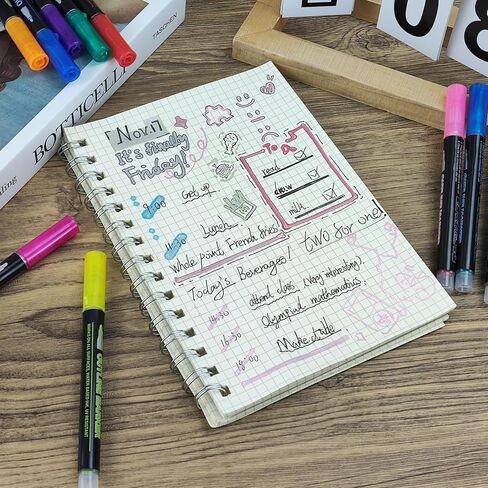 BOTTICELLI
TASCHEN
08
Nov.1
It's finally
Friday!
To Do
read
draw
milk
9:00
Get up
11:30
Lunch
Whole point French fries
Today's Beverages! two for one!
14:30
attend class (Very interesting).
16:30
Olympiad mathematics.
18:00
Make a table
OUTLINE MARKER